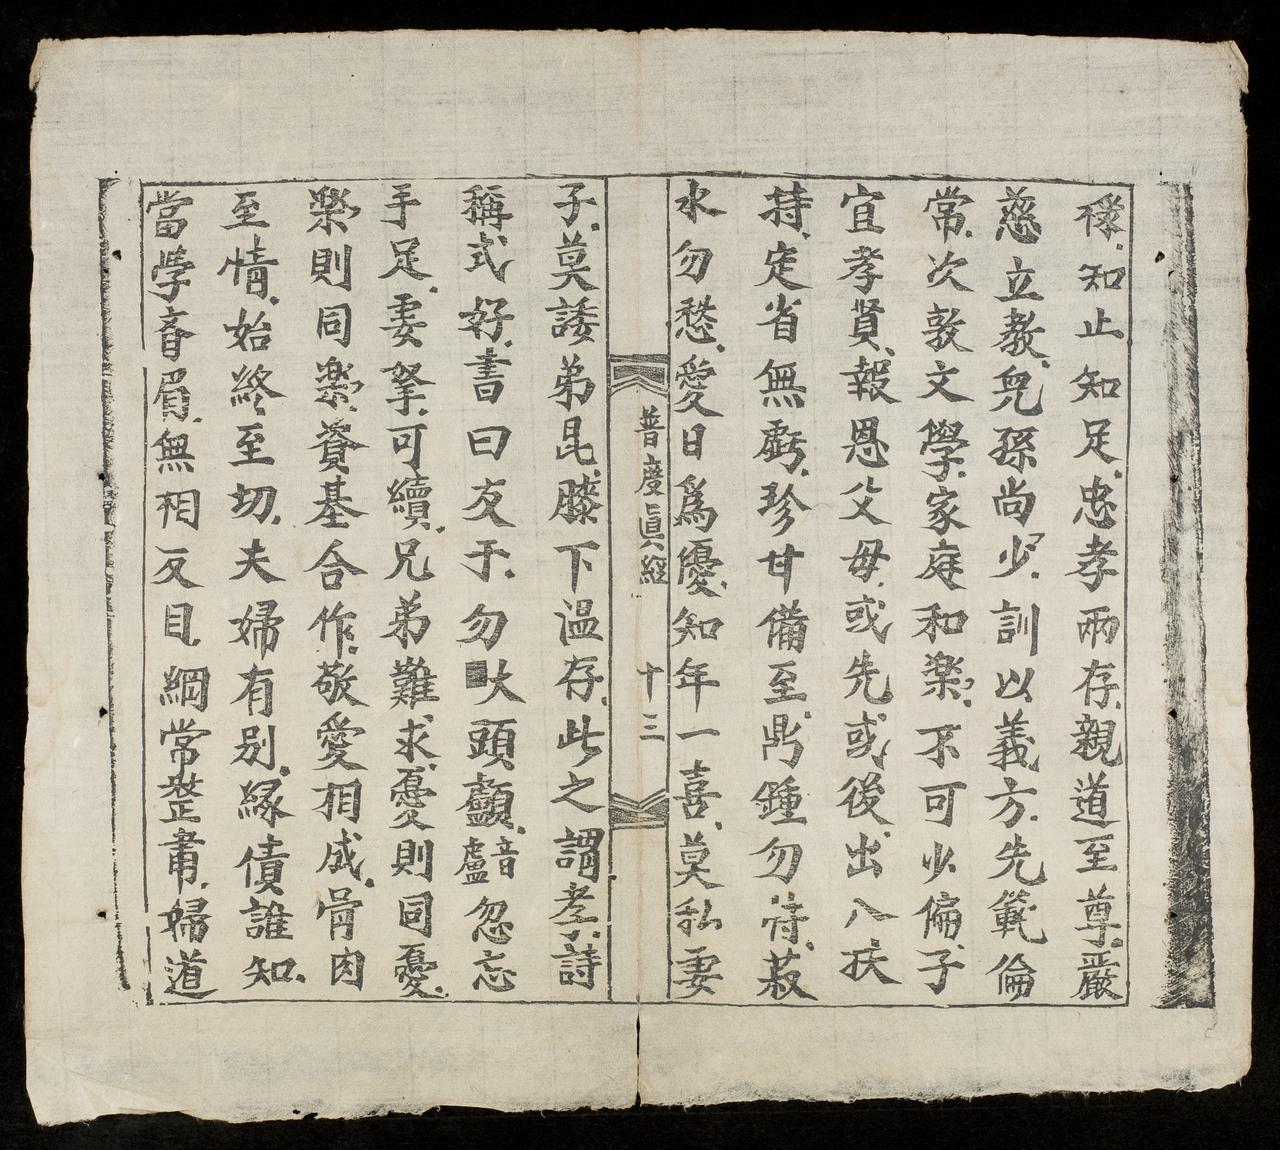 知止知足忠孝兩存親道至尊嚴
慈立教兒孫尚少訓以義方先範倫
常次敦文學家庭和樂不可少偏子
宜孝賢報恩父母或先或後出入扶
持定省無虧珍甘備至鼎鍾勿待菽
水勿愁愛日爲優知年一喜莫私妻
普慶眞經 十三
子莫諉弟昆膝下溫存此之謂孝詩
稱式好書曰友于勿以頭顱音盧忽忘
手足妻孥可續兄弟難求憂則同憂
樂則同樂資基合作敬愛相成骨肉
至情始終至切夫婦有別緣債誰知
當學齊眉無相反目綱常整肅婦道